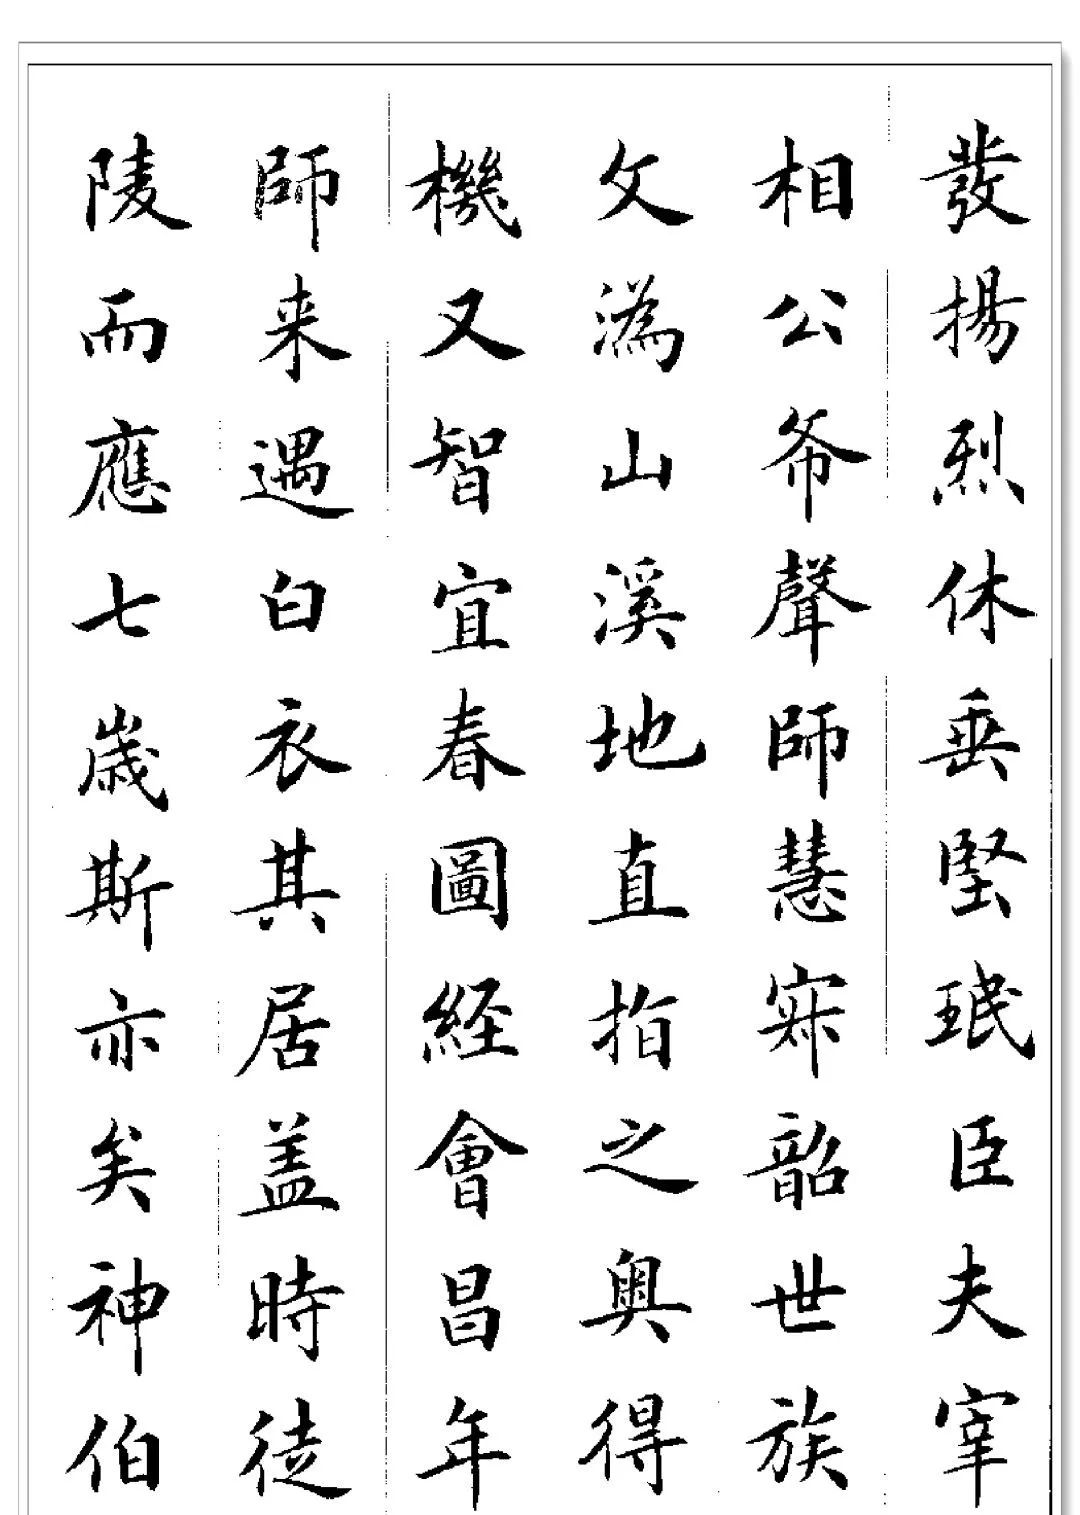 發揚烈休垂堅珉臣夫宰
相公爷聲師慧寂韶世族
文溈山溪地直指之奥得
機又智宜春圖経會昌年
師来遇白衣其居盖時徒
陵而應七歳斯亦矣神伯